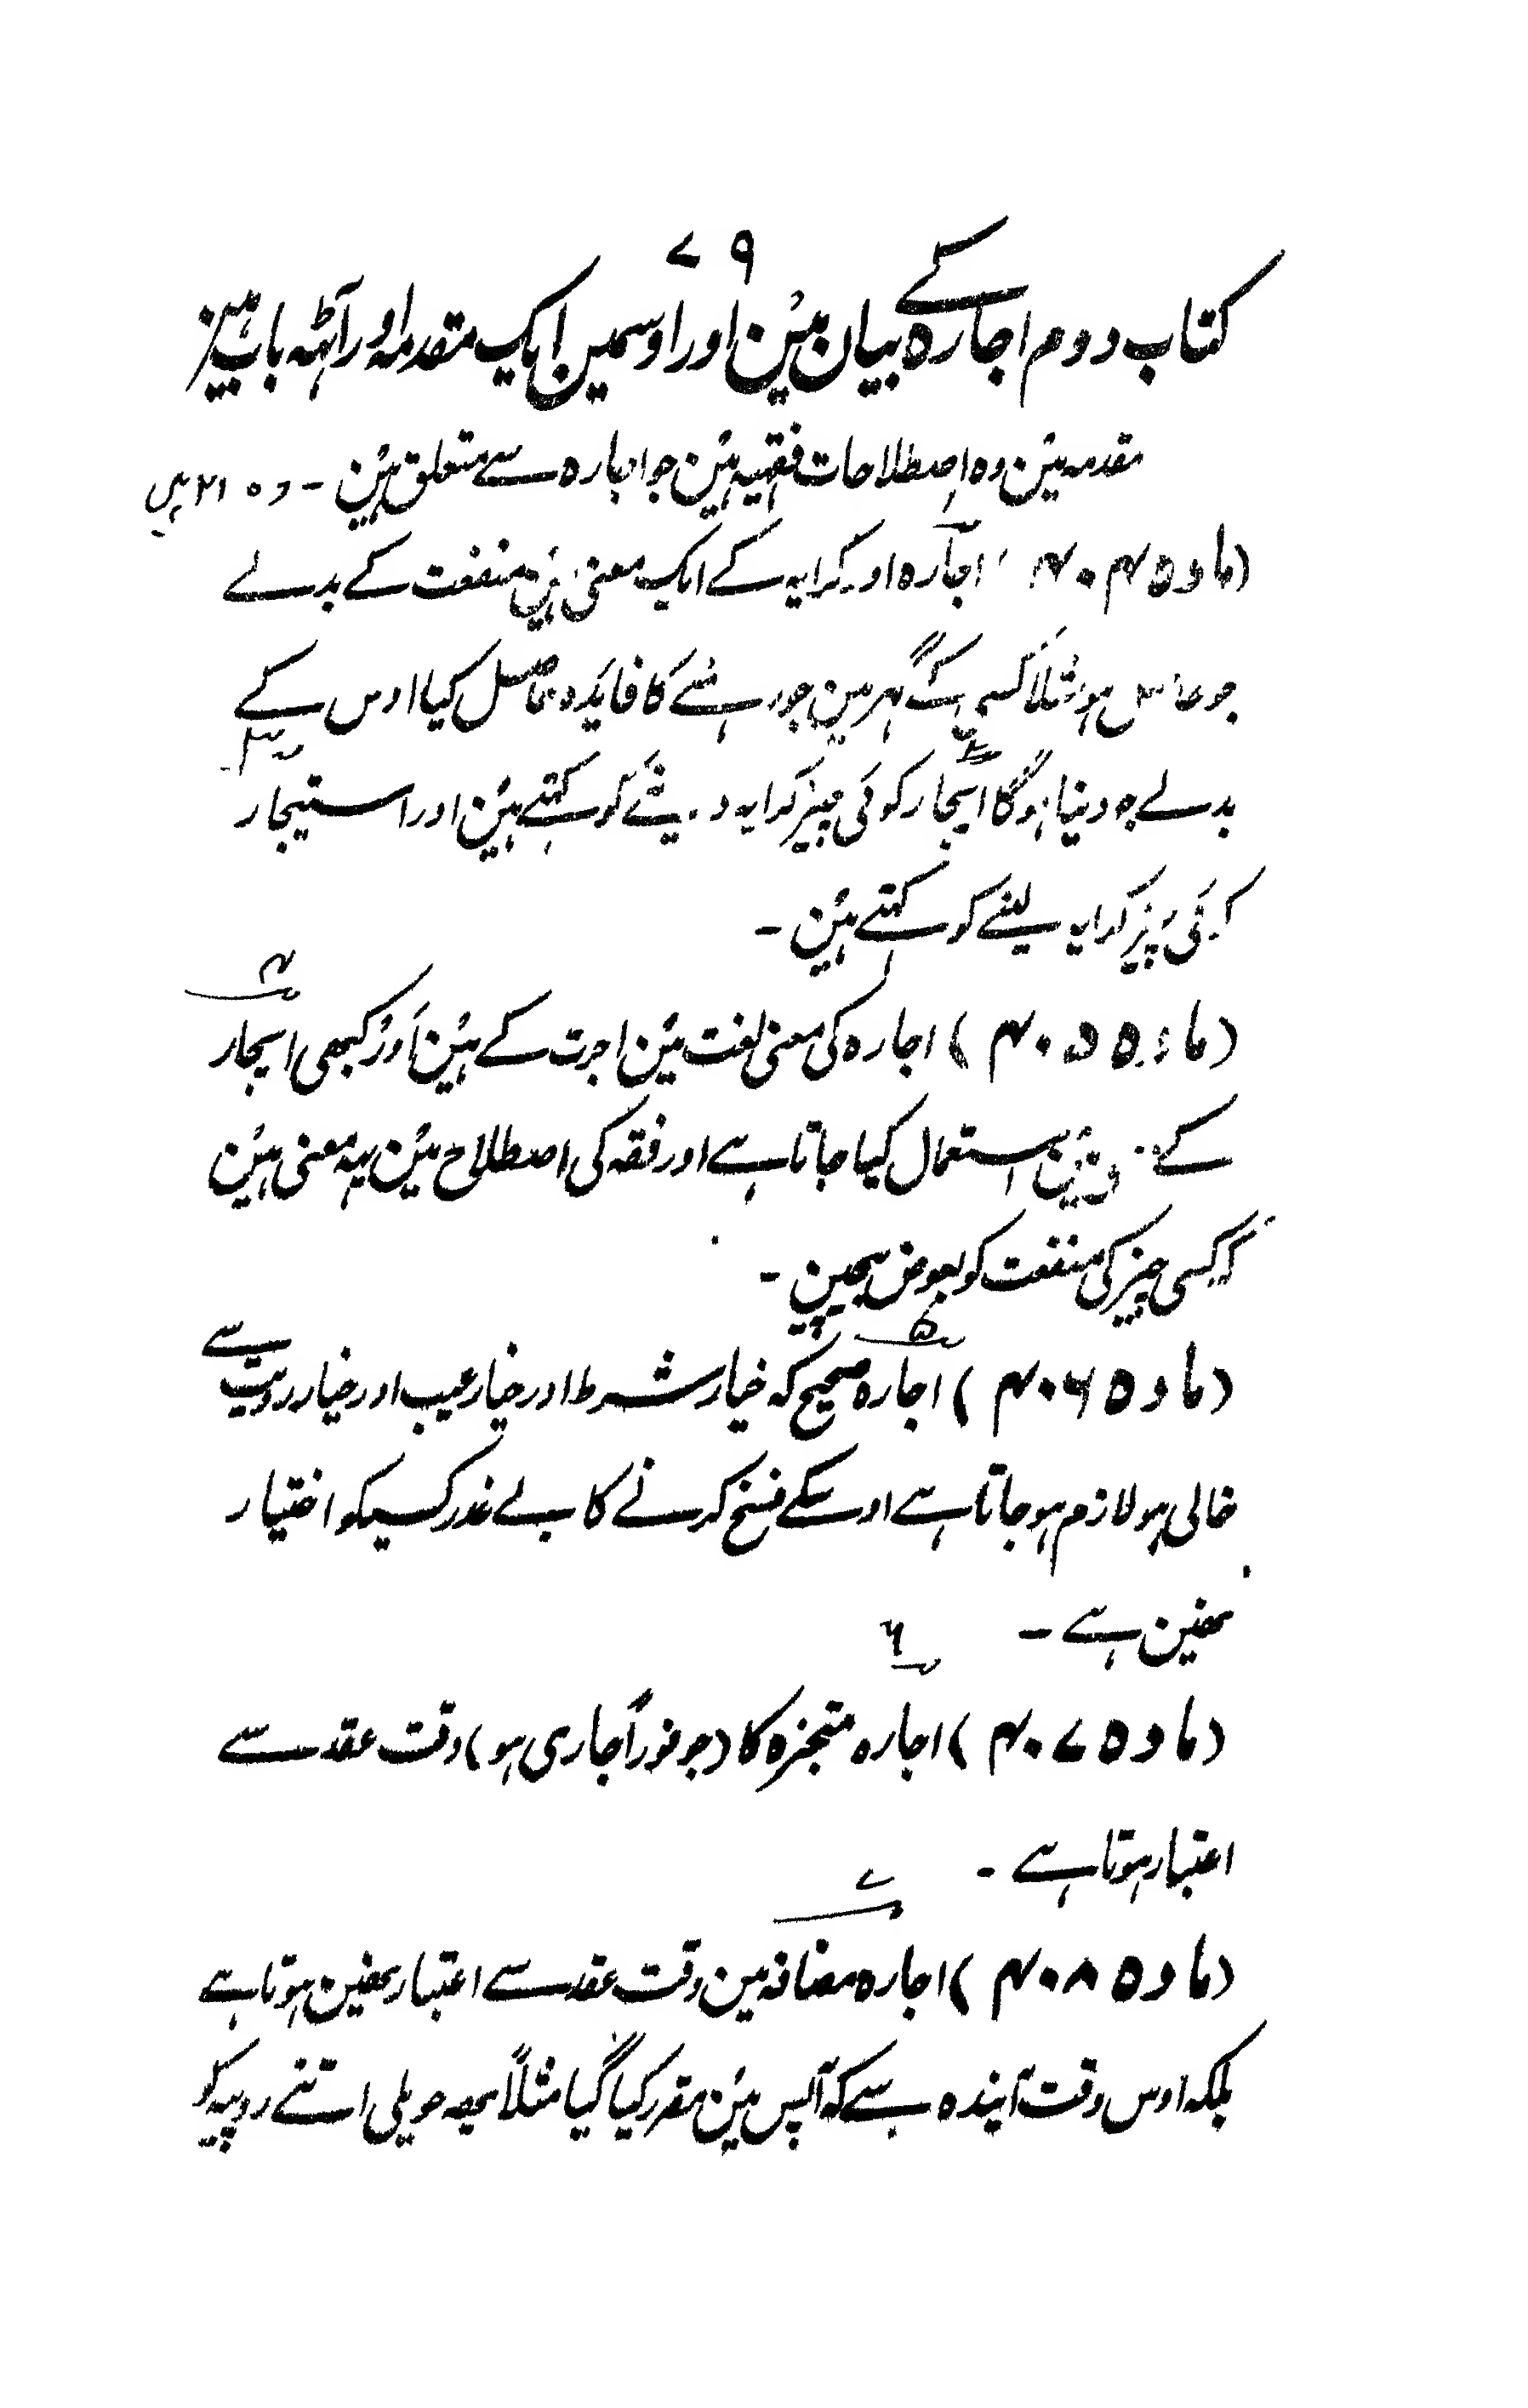 ۷۹
کتاب دوم اجارہ کے بیان مین اور اوسمین ایک مقدمہ اور آٹہہ باب ہین
مقدمہ مین وہ اصطلاحات فقہیہ ہین جو اجارہ سے متعلق ہین - وہ ۲۱ ہیں
(مادہ ۴۰۴) اجارہ اور کرایہ کے ایک معنی ہین منفعت کے بدلے
جو حاصل ہو مثلاً کسی کے گہر مین جو رہنے کا فایدہ حاصل کیا اوس کے
بدلے جو دینا ہوگا ایجار کوئی چیز کرایہ دینے کو کہتے ہین اور استیجار
کوئی چیز کرایہ لینے کو کہتے ہین -
۴
(مادہ ۴۰۵) اجارہ کی معنی لغت مین اجرت کے ہین اور کبھی ایجار
کے مین استعمال کیا جاتا ہے اور فقہ کی اصطلاح مین یہہ معنی ہین
کہ کسی چیز کی منفعت کو بعوض بیچین -
۵
(مادہ ۴۰۶) اجارہ صحیح کہ خیار شرط اور خیار عیب اور خیار رویت سے
خالی ہو لازم ہو جاتا ہے اوسکے فسخ کرنے کا بے عذر کسیکو اختیار
نھین ہے -
۶
(مادہ ۴۰۷) اجارہ منجزہ کا (جو فوراً جاری ہو) وقت عقد سے
اعتبار ہوتا ہے -
۷
(مادہ ۴۰۸) اجارہ مضافہ مین وقت عقد سے اعتبار نھین ہوتا ہے
بلکہ اوس وقت آیندہ سے کہ آپس مین مقرر کیا گیا مثلاً یھہ حویلی اتنے روپیہ کو